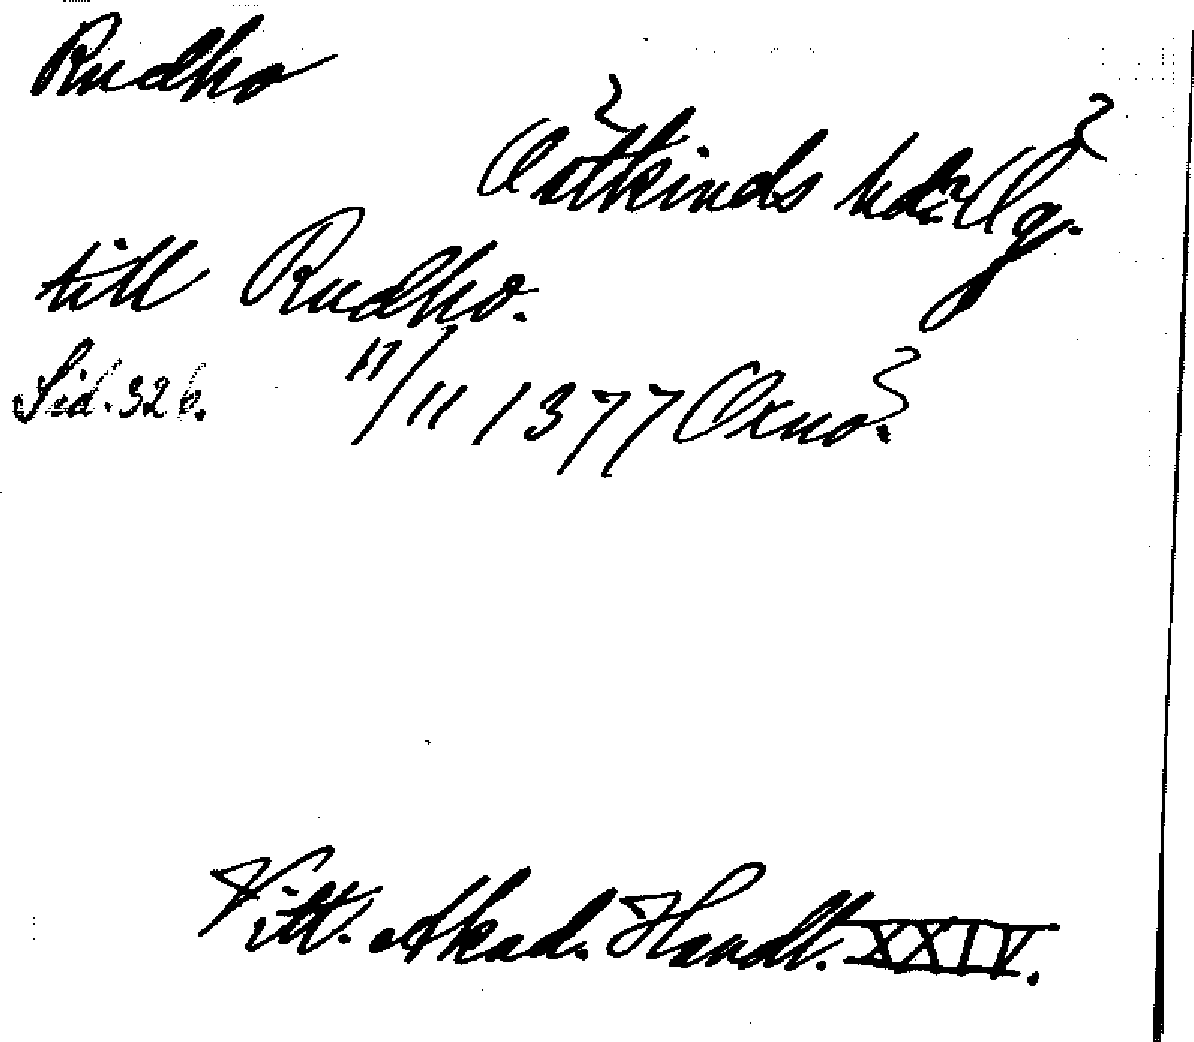 Rudho
Östkinds hd. Ög.
till Rudho.
Sid. 326. 17/11 1377 Oxnö.
Vitt. Akad. Handl. XXIV.